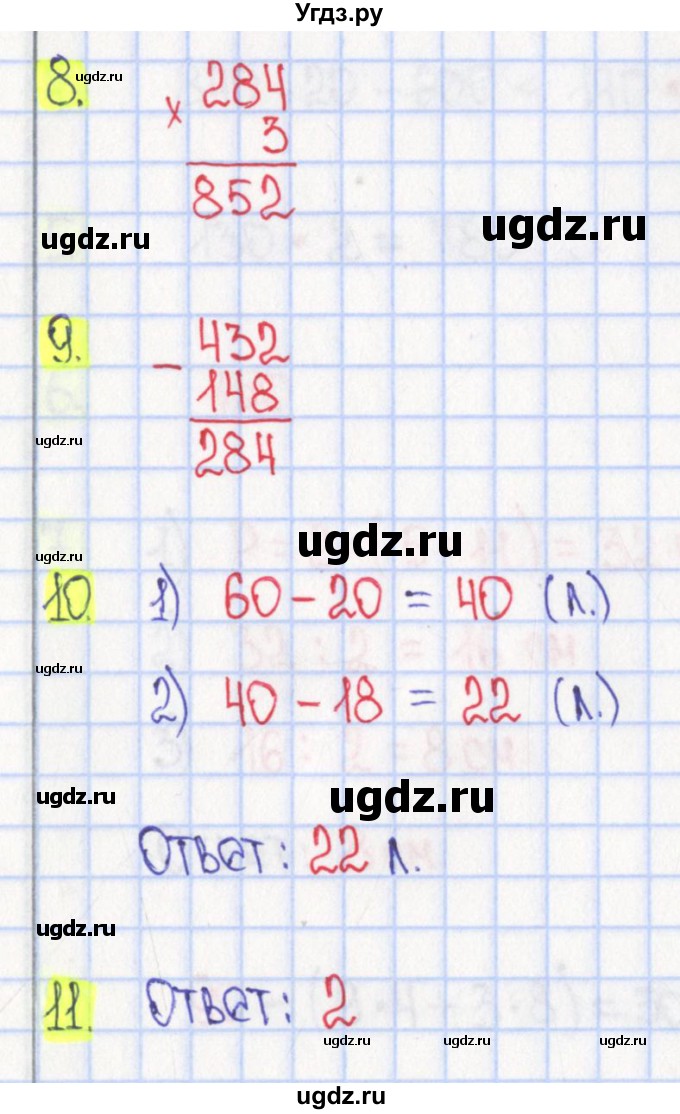 Угдз.ру
ugdz.ru
8. 284
× 3
852
ugdz.ru
ugdz.ru
9. 432
−
148
ugdz.ru
284
ugdz.ru
ugdz.ru
10. 1) 60 − 20 = 40 (л.)
ugdz.ru
2) 40 − 18 = 22 (л.)
ugdz.ru
ugdz.ru
Ответ: 22 л.
ugdz.ru
11. Ответ: 2
ugdz.ru
ugdz.ru
ugdz.ru